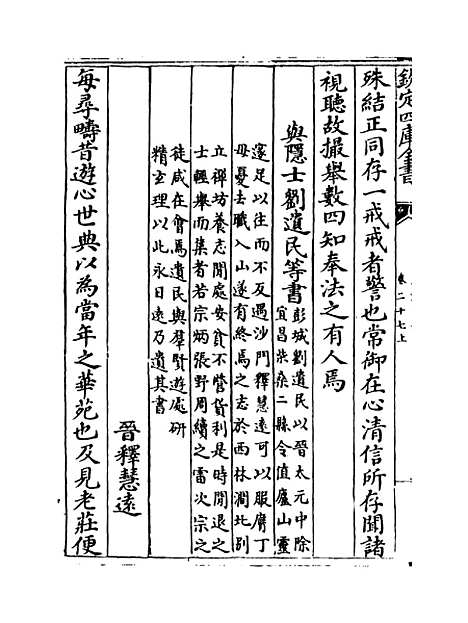 欽定四庫全書
卷二十七上
殊結正同存一戒戒者警也常御在心清信所存聞諸
視聽故撮舉數四知奉法之有人焉
與隱士劉遺民等書
彭城劉遺民以晉太元中除
宜昌柴桑二縣令值廬山靈
邃足以往而不反遇沙門釋慧遠可以服膺丁
母憂去職入山遂有終焉之志於西林澗北別
立禪坊養志閒處安貧不營貨利是時閒退之
士輕舉而集者若宗炳張野周續之雷次宗之
徒咸在會焉遺民與羣賢遊處研
精玄理以此永日遠乃遺其書
晉釋慧遠
每尋疇昔遊心世典以為當年之華苑也及見老莊便